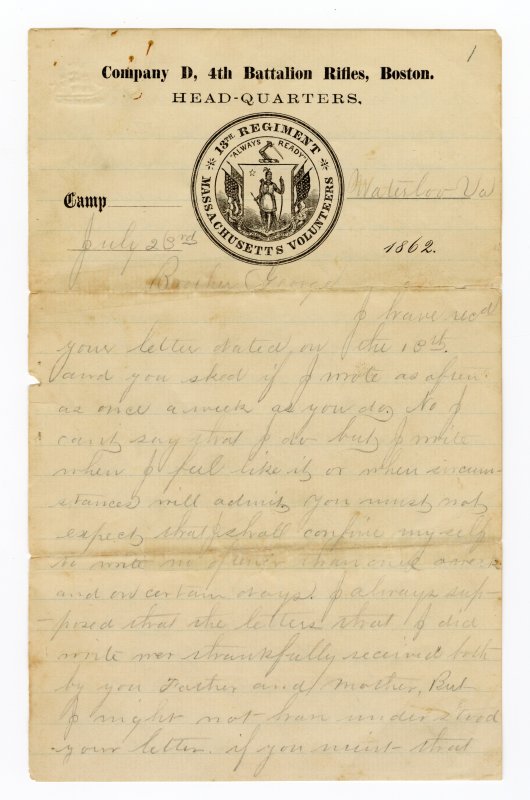 1
Company D, 4th Battalion Rifles, Boston.
HEAD-QUARTERS,
13TH REGIMENT
"ALWAYS READY"
MASSACHUSETTS VOLUNTEERS
Camp Waterloo Va
July 23rd 1862.
Brother George
I have recd
your letter dated on the 18th.
and you sked if I wrote as ofren
as once a week as you do. No I
cant say that I do but I write
when I feel like it, or when sircum-
stances will admit, you must not
expect that I shall confine myself
to write no oftner than once a week
and on certain days. I always sup-
-posed that the letters that I did
write wer thankfully received both
by you Father and Mother, But
I might not han under stood
your letter. if you ment that